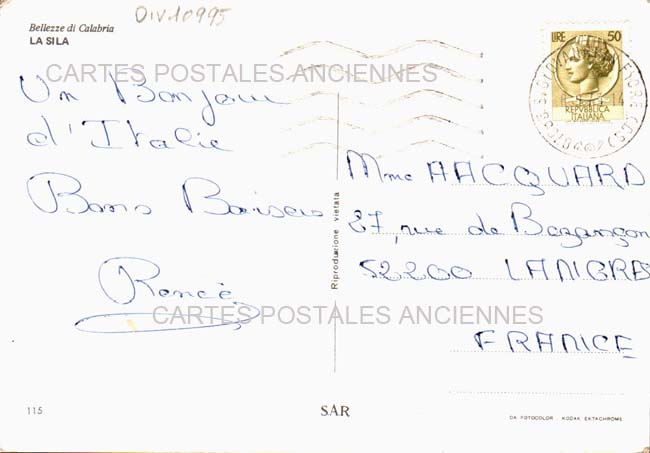 DIV10995
Bellezze di Calabria
LA SILA
LIRE 50
REPVBBLICA
ITALIANA
CARTES POSTALES ANCIENNES
Un Bonjour
d'Italie
Bons Baisers
Renée
Mme AACQUARD
27, rue de Bazançon
52200 LANGRES
FRANCE
CARTES POSTALES ANCIENNES
Riproduzione vietata
115
SAR
DA FOTOCOLOR KODAK EKTACHROME